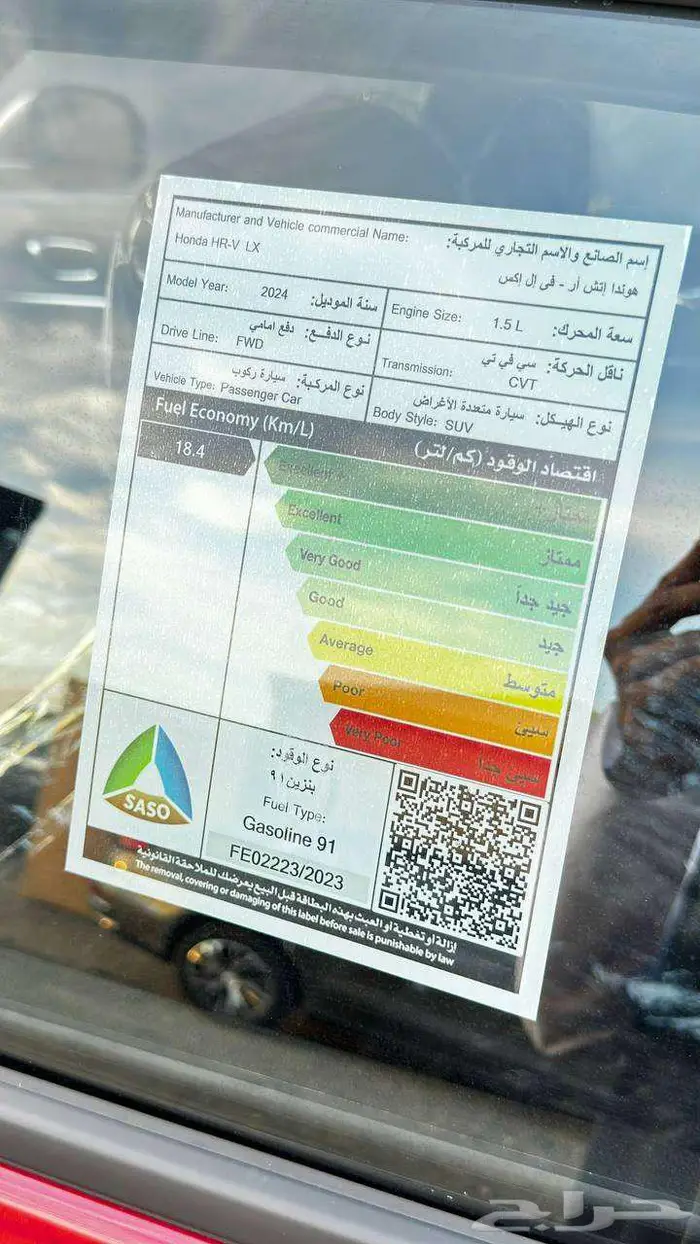 Manufacturer and Vehicle commercial Name:
إسم الصانع والاسم التجاري للمركبة:
Honda HR-V LX
هوندا إتش أر - في إل إكس
Model Year: 2024 سنة الموديل:
Engine Size: 1.5 L سعة المحرك:
Drive Line: دفع امامي نوع الدفع:
FWD
Transmission: سي في تي ناقل الحركة:
CVT
Vehicle Type: سيارة ركوب نوع المركبة:
Passenger Car
Body Style: سيارة متعددة الأغراض نوع الهيكل:
SUV
Fuel Economy (Km/L) اقتصاد الوقود (كم/لتر)
18.4
Excellent + ممتاز +
Excellent ممتاز
Very Good جيد جداً
Good جيد
Average متوسط
Poor سيئ
Very Poor سيئ جداً
SASO
نوع الوقود:
بنزين ٩١
Fuel Type:
Gasoline 91
FE02223/2023
إزالة أو تغطية أو العبث بهذه البطاقة قبل البيع يعرضك للملاحقة القانونية
The removal, covering or damaging of this label before sale is punishable by law
حراج